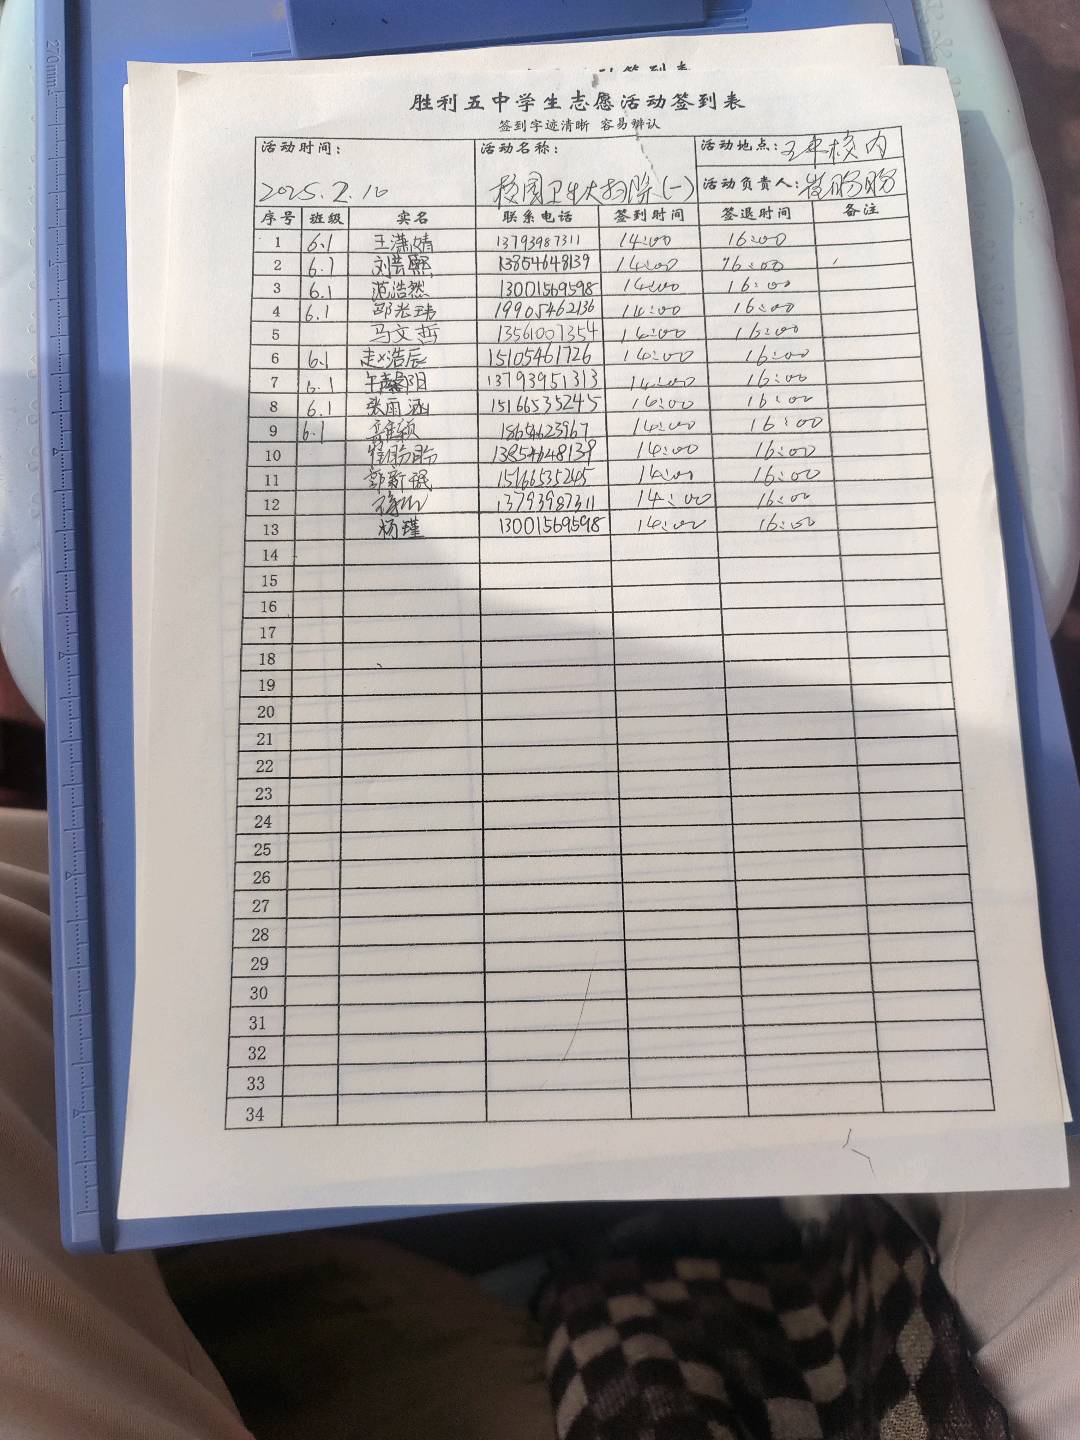 270mm
胜利五中学生志愿活动签到表
签到字迹清晰 容易辨认
活动时间： 活动名称： 活动地点：五中校内
2025.2.10 校园卫生大扫除(一) 活动负责人：崔盼盼
序号 班级 实名 联系电话 签到时间 签退时间 备注
1 6.1 王潇婧 13793987311 14:00 16:00
2 6.1 刘芸熙 13854648139 14:00 16:00
3 6.1 范浩然 13001569598 14:00 16:00
4 6.1 邵光玮 19905462136 14:00 16:00
5 马文哲 13561007354 14:00 16:00
6 6.1 赵浩辰 15105461726 14:00 16:00
7 6.1 13793951313 14:00 16:00
8 6.1 张雨涵 15166535245 14:00 16:00
9 6.1 18654623967 14:00 16:00
10 崔盼盼 13854648139 14:00 16:00
11 郭新珉 15166535245 14:00 16:00
12 13793987311 14:00 16:00
13 杨瑾 13001569598 14:00 16:00
14
15
16
17
18
19
20
21
22
23
24
25
26
27
28
29
30
31
32
33
34